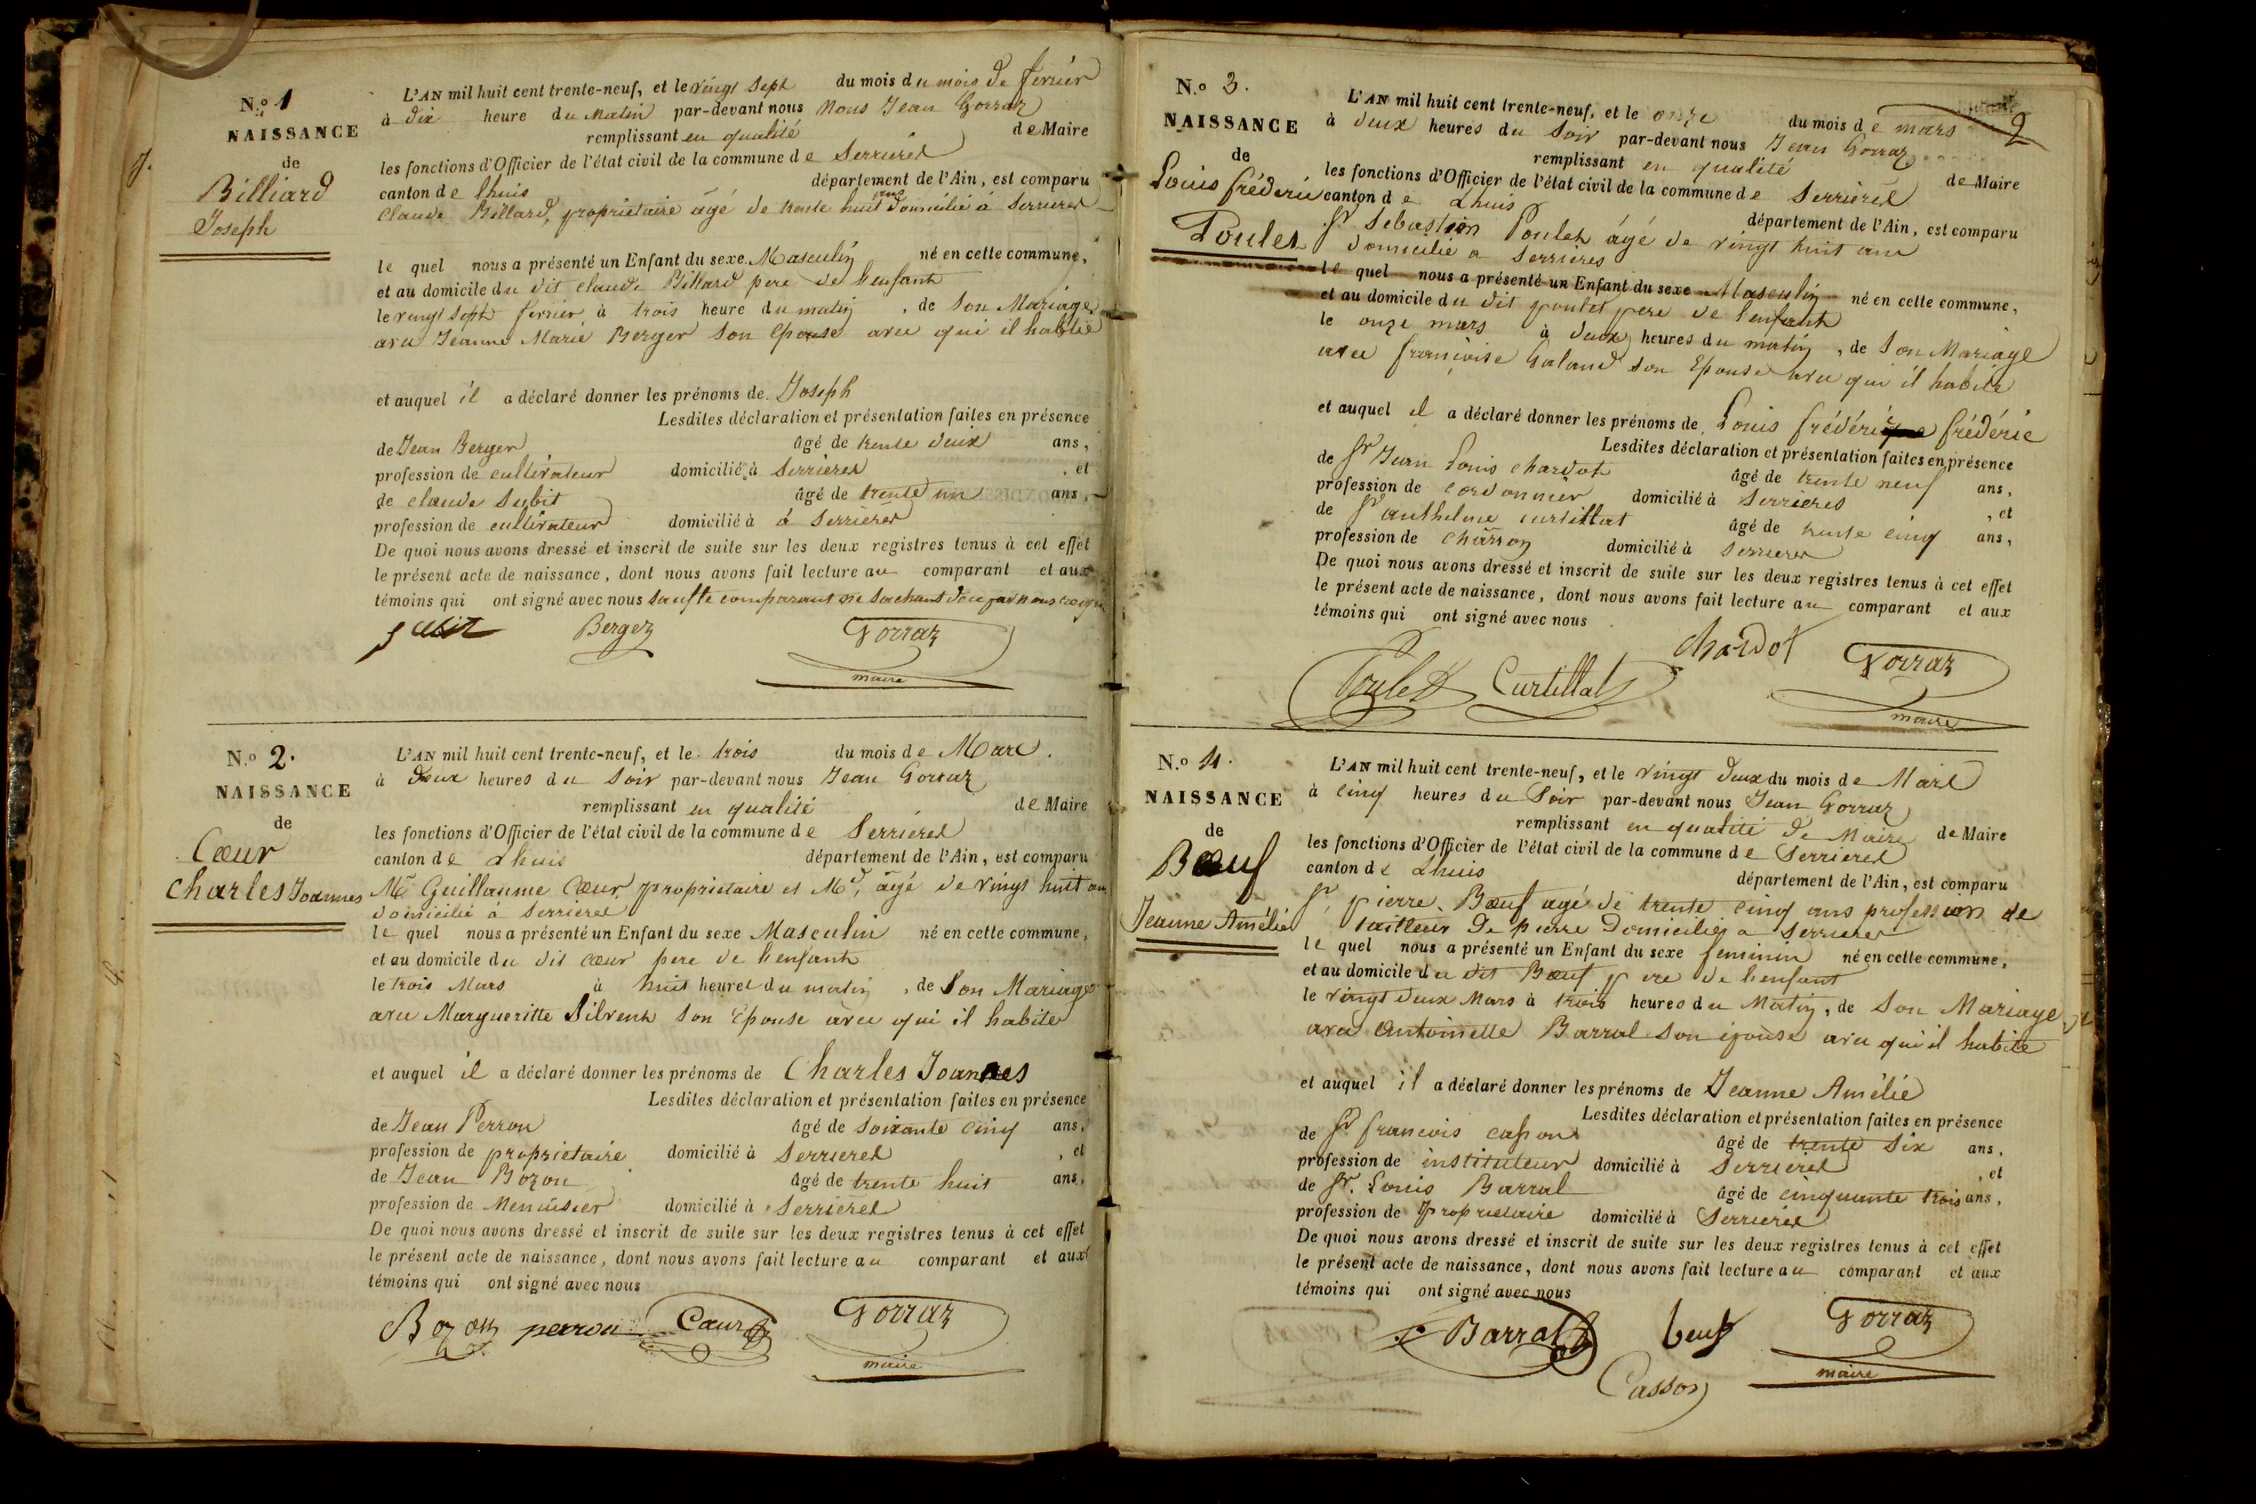 N.º 1
NAISSANCE
de
Billiard
Joseph
L'AN mil huit cent trente-neuf, et le vingt sept du mois du mois de fevrier
à dix heure du matin par-devant nous Nous Jean Gorraz
remplissant en qualité de Maire
les fonctions d'Officier de l'état civil de la commune de Serrieres
canton de lhuis département de l'Ain, est comparu
Claude Billard, proprietaire âgé de trente huit ans domicilié à Serrieres
le quel nous a présenté un Enfant du sexe Masculin né en cette commune,
et au domicile du dit claude Billard pere de l'enfant
le vingt sept fevrier à trois heure du matin, de son Mariage
avec Jeanne Marie Berger son Epouse avec qui il habite
et auquel il a déclaré donner les prénoms de Joseph
Lesdites déclaration et présentation faites en présence
de Jean Berger âgé de trente deux ans,
profession de cultivateur domicilié à Serrieres, et
de claude Subit âgé de trente un ans,
profession de cultivateur domicilié à à Serrieres
De quoi nous avons dressé et inscrit de suite sur les deux registres tenus à cet effet
le présent acte de naissance, dont nous avons fait lecture au comparant et aux
témoins qui ont signé avec nous sauf le comparant ne sachant
Subit Berger Gorraz
maire
N.º 2.
NAISSANCE
de
Cœur
Charles Joannes
L'AN mil huit cent trente-neuf, et le trois du mois de Mars.
à deux heures du soir par-devant nous Jean Gorraz
remplissant en qualité de Maire
les fonctions d'Officier de l'état civil de la commune de Serrieres
canton de Lhuis département de l'Ain, est comparu
Mr Guillaume Cœur proprietaire et Md, âgé de vingt huit ans
domicilié à Serrieres
le quel nous a présenté un Enfant du sexe Masculin né en cette commune,
et au domicile du dit cœur pere de l'enfant
le trois Mars à huit heures du matin, de son Mariage
avec Margueritte Silvent son Epouse avec qui il habite
et auquel il a déclaré donner les prénoms de Charles Joannes
Lesdites déclaration et présentation faites en présence
de Jean Perron âgé de soixante cinq ans,
profession de proprietaire domicilié à Serrieres, et
de Jean Bozon âgé de trente huit ans,
profession de Menuisier domicilié à Serrieres
De quoi nous avons dressé et inscrit de suite sur les deux registres tenus à cet effet
le présent acte de naissance, dont nous avons fait lecture au comparant et aux
témoins qui ont signé avec nous
Bozon perron Cœur Gorraz
maire
2
N.º 3.
NAISSANCE
de
Louis fréderic
Poulet
L'AN mil huit cent trente-neuf, et le onze du mois de mars
à deux heures du soir par-devant nous Jean Gorraz
remplissant en qualité de Maire
les fonctions d'Officier de l'état civil de la commune de Serrieres
canton de Lhuis département de l'Ain, est comparu
Sr Sebastien Poulet âgé de vingt huit ans
domicilié a Serrieres
le quel nous a présenté un Enfant du sexe Masculin né en cette commune,
et au domicile du dit poulet pere de l'enfant
le onze mars à deux heures du matin, de son Mariage
avec françoise Galand son Epouse avec qui il habite
et auquel il a déclaré donner les prénoms de Louis frédérique frédéric
Lesdites déclaration et présentation faites en présence
de Sr Jean Louis chardot âgé de trente neuf ans,
profession de cordonnier domicilié à Serrieres, et
de Sr anthelme curtillat âgé de trente cinq ans,
profession de charron domicilié à Serrieres
De quoi nous avons dressé et inscrit de suite sur les deux registres tenus à cet effet
le présent acte de naissance, dont nous avons fait lecture au comparant et aux
témoins qui ont signé avec nous
chardot
Poulet Curtillat Gorraz
maire
N.º 4.
NAISSANCE
de
Bœuf
Jeanne Amélie
L'AN mil huit cent trente-neuf, et le vingt deux du mois de Mars
à cinq heures du Soir par-devant nous Jean Gorraz
remplissant en qualité de Maire de Maire
les fonctions d'Officier de l'état civil de la commune de Serrieres
canton de Lhuis département de l'Ain, est comparu
Sr pierre Bœuf agé de trente cinq ans profession de
tailleur de pierre domicilié a Serrieres
le quel nous a présenté un Enfant du sexe feminin né en cette commune,
et au domicile du dit Bœuf pere de l'enfant
le vingt deux Mars à trois heures du Matin, de son Mariage
avec Antoinette Barral son épouse avec qui il habite
et auquel il a déclaré donner les prénoms de Jeanne Amélie
Lesdites déclaration et présentation faites en présence
de Sr francois casson âgé de trente six ans,
profession de instituteur domicilié à Serrieres, et
de Sr. Louis Barral âgé de cinquante trois ans,
profession de Proprietaire domicilié à Serrieres
De quoi nous avons dressé et inscrit de suite sur les deux registres tenus à cet effet
le présent acte de naissance, dont nous avons fait lecture au comparant et aux
témoins qui ont signé avec nous
Barral beuf Gorraz
maire
Casson